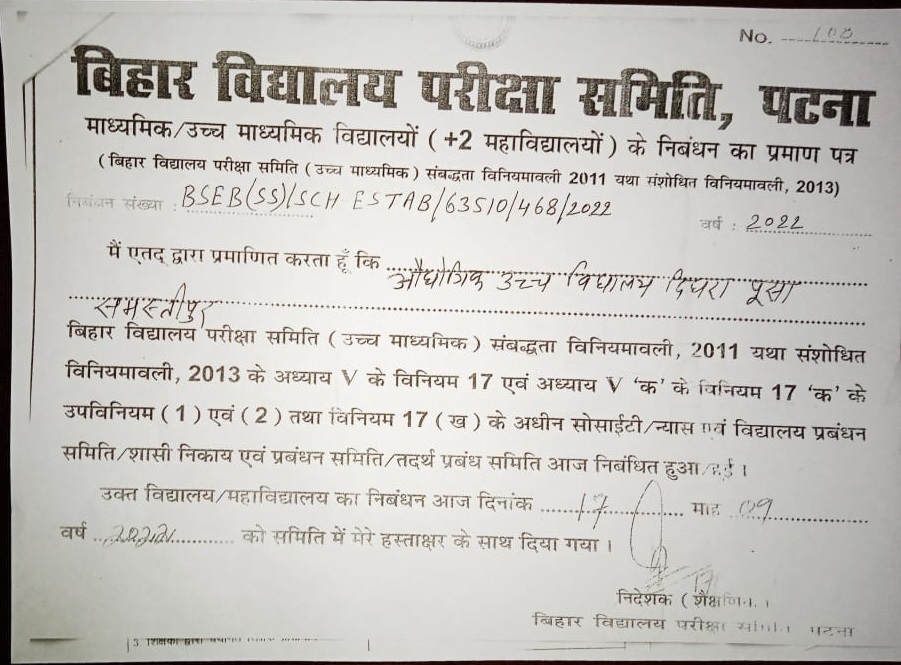 No. 108
बिहार विद्यालय परीक्षा समिति, पटना
माध्यमिक/उच्च माध्यमिक विद्यालयों ( +2 महाविद्यालयों ) के निबंधन का प्रमाण पत्र
( बिहार विद्यालय परीक्षा समिति ( उच्च माध्यमिक ) संबद्धता विनियमावली 2011 यथा संशोधित विनियमावली, 2013)
निबंधन संख्या : BSEB(SS)/SCH ESTAB/63510/468/2022
वर्ष : 2022
मैं एतद् द्वारा प्रमाणित करता हूँ कि औद्योगिक उच्च विद्यालय दिघरा पूसा
समस्तीपुर
बिहार विद्यालय परीक्षा समिति ( उच्च माध्यमिक ) संबद्धता विनियमावली, 2011 यथा संशोधित
विनियमावली, 2013 के अध्याय V के विनियम 17 एवं अध्याय V 'क' के विनियम 17 'क' के
उपविनियम ( 1 ) एवं ( 2 ) तथा विनियम 17 ( ख ) के अधीन सोसाईटी/न्यास एवं विद्यालय प्रबंधन
समिति/शासी निकाय एवं प्रबंधन समिति/तदर्थ प्रबंध समिति आज निबंधित हुआ/हुई ।
उक्त विद्यालय/महाविद्यालय का निबंधन आज दिनांक 17 माह 09
वर्ष को समिति में मेरे हस्ताक्षर के साथ दिया गया ।
निदेशक ( शैक्षणिक )
बिहार विद्यालय परीक्षा समिति पटना